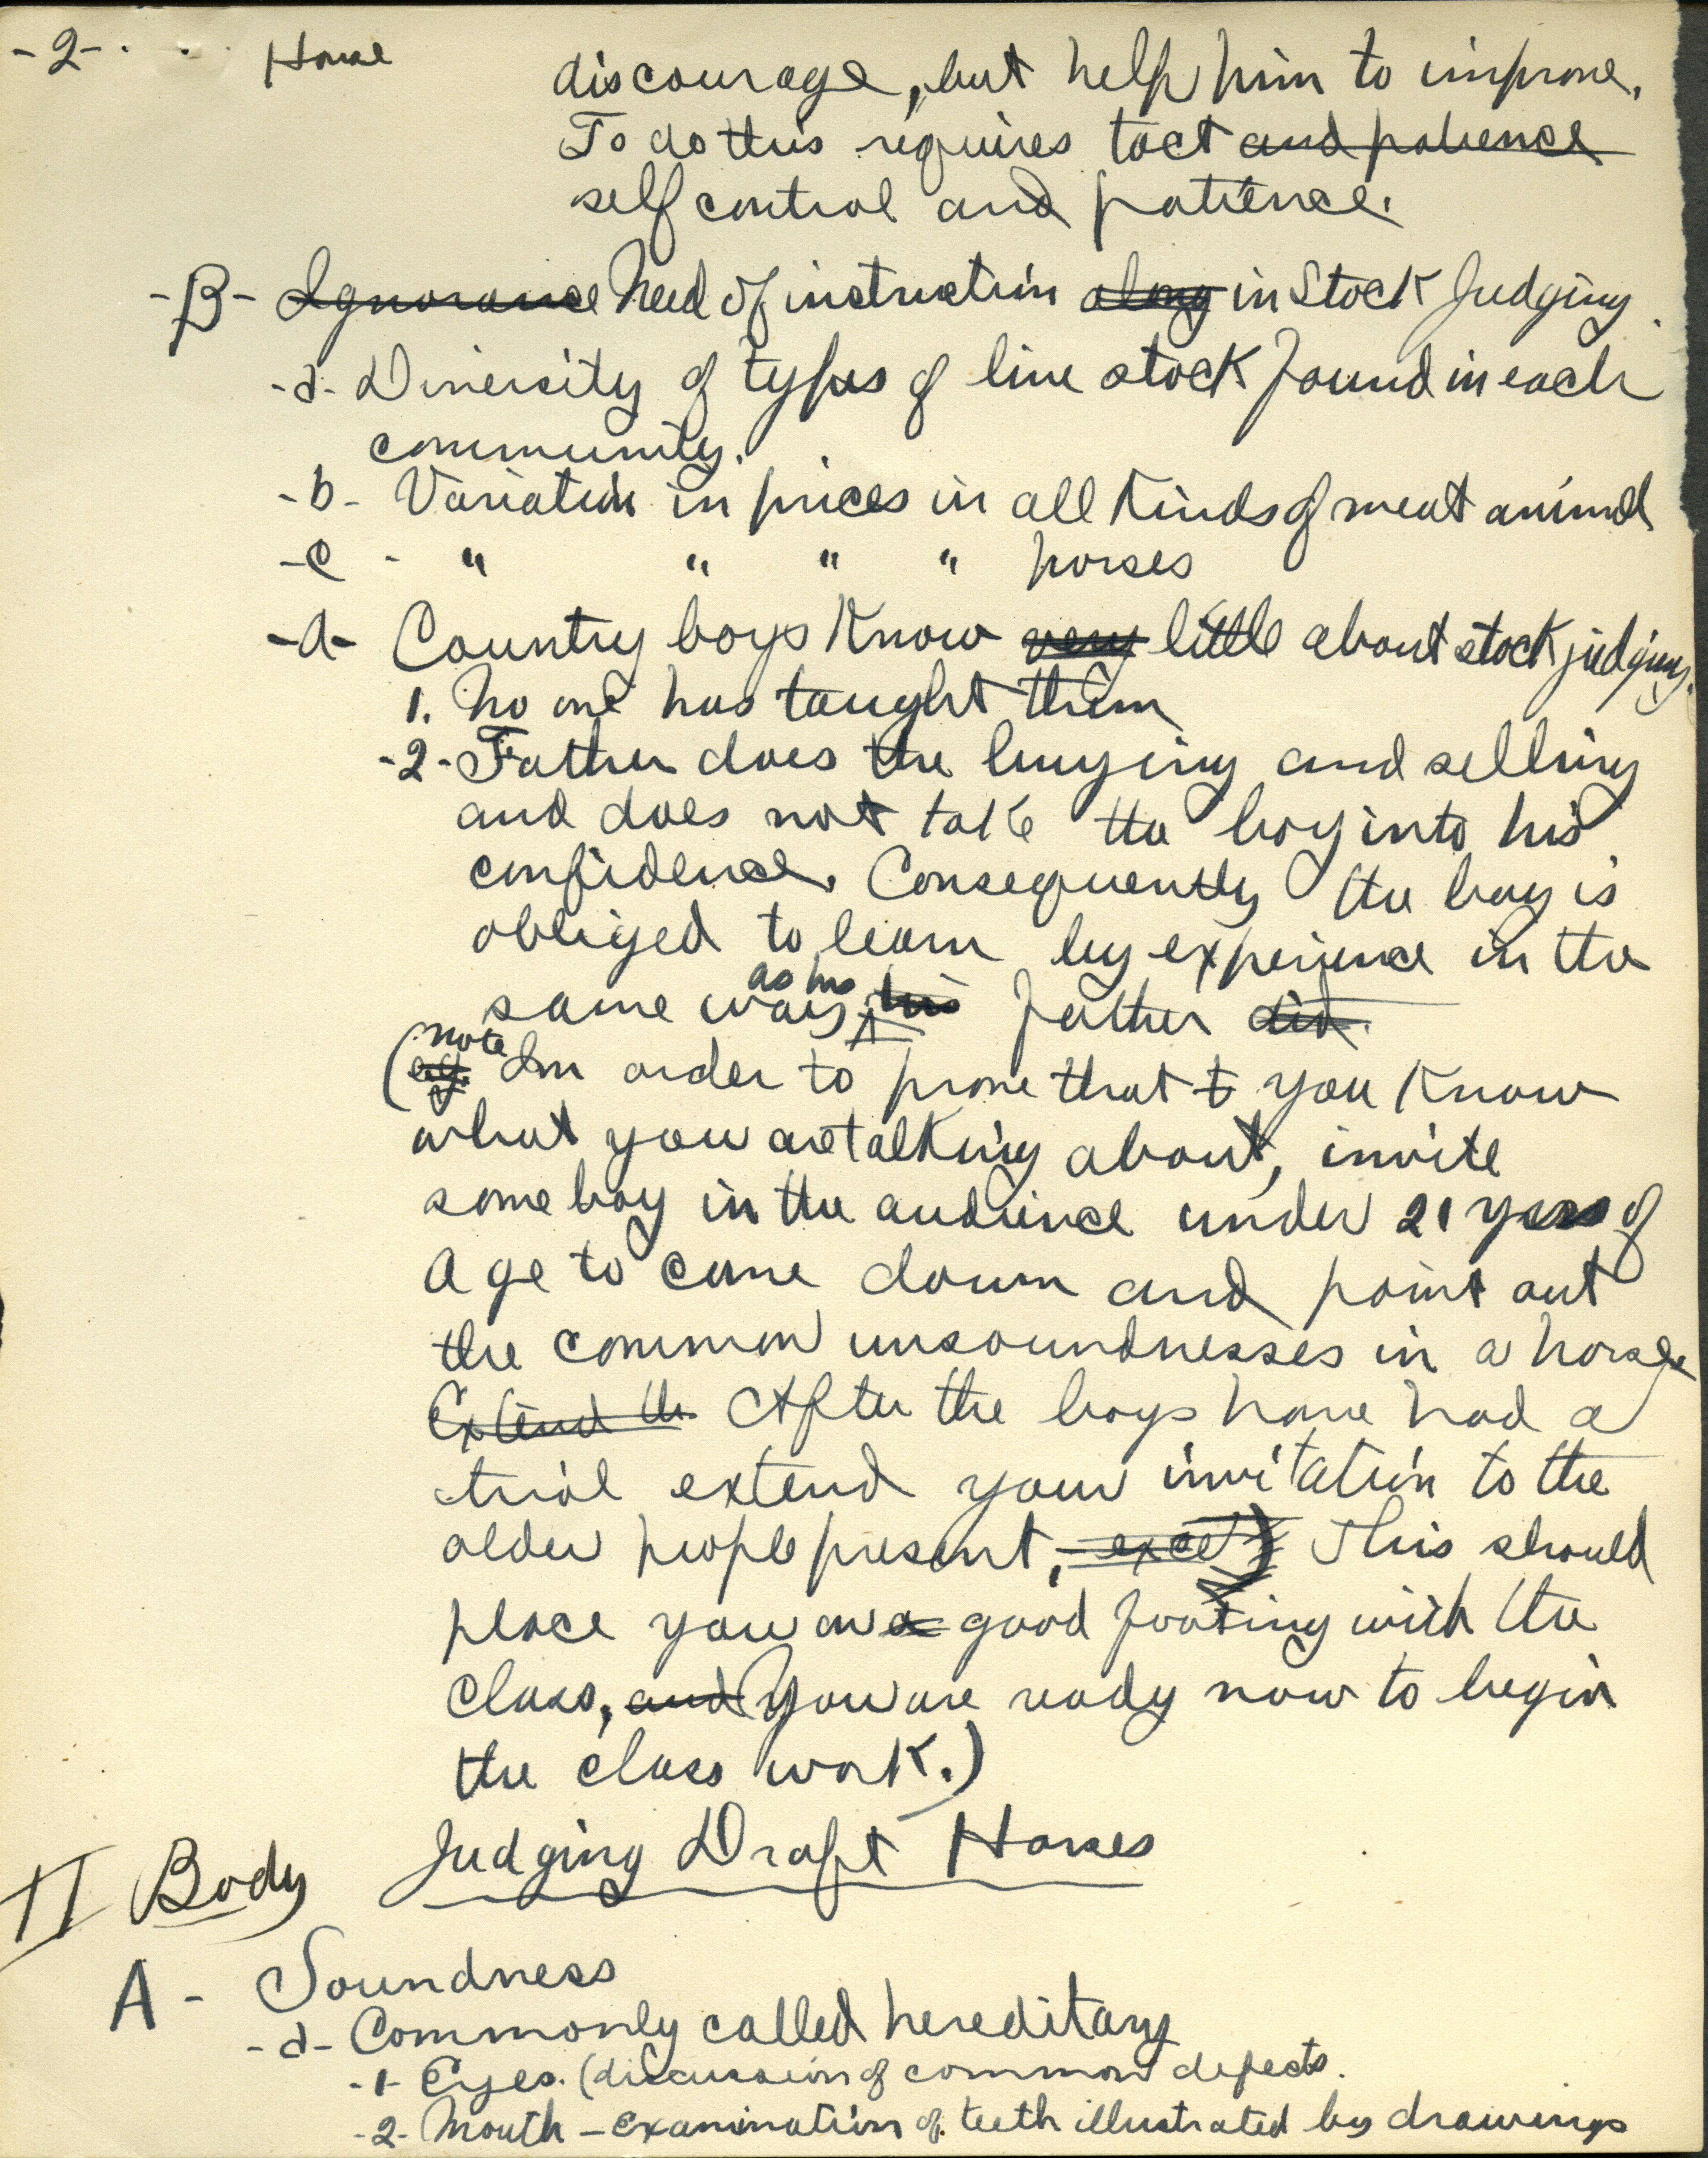 -2- Horse
discourage, but help him to improve.
To do this requires tact and patience
self control and patience.
-B- Ignorance Need of instruction along in Stock Judging.
-a- Diversity of types of live stock found in each
community.
-b- Variation in prices in all kinds of meat animals
-c- " " " " horses
-d- Country boys know very little about stock judging.
1. No one has taught them
-2- Father does the buying and selling
and does not take the boy into his
confidence. Consequently the boy is
obliged to learn by experience in the
same way as his his father did.
(note e.g. In order to prove that t you know
what you are talking about, invite
some boy in the audience under 21 years of
age to come down and point out
the common unsoundnesses in a horse
Extend the After the boys have had a
trial extend your invitation to the
older people present, except) This should
place you on a good footing with the
class, and You are ready now to begin
the class work.)
Judging Draft Horses
II Body
A- Soundness
-a- Commonly called hereditary
-1- Eyes. (discussion of common defects.
-2- Mouth - examination of teeth illustrated by drawings